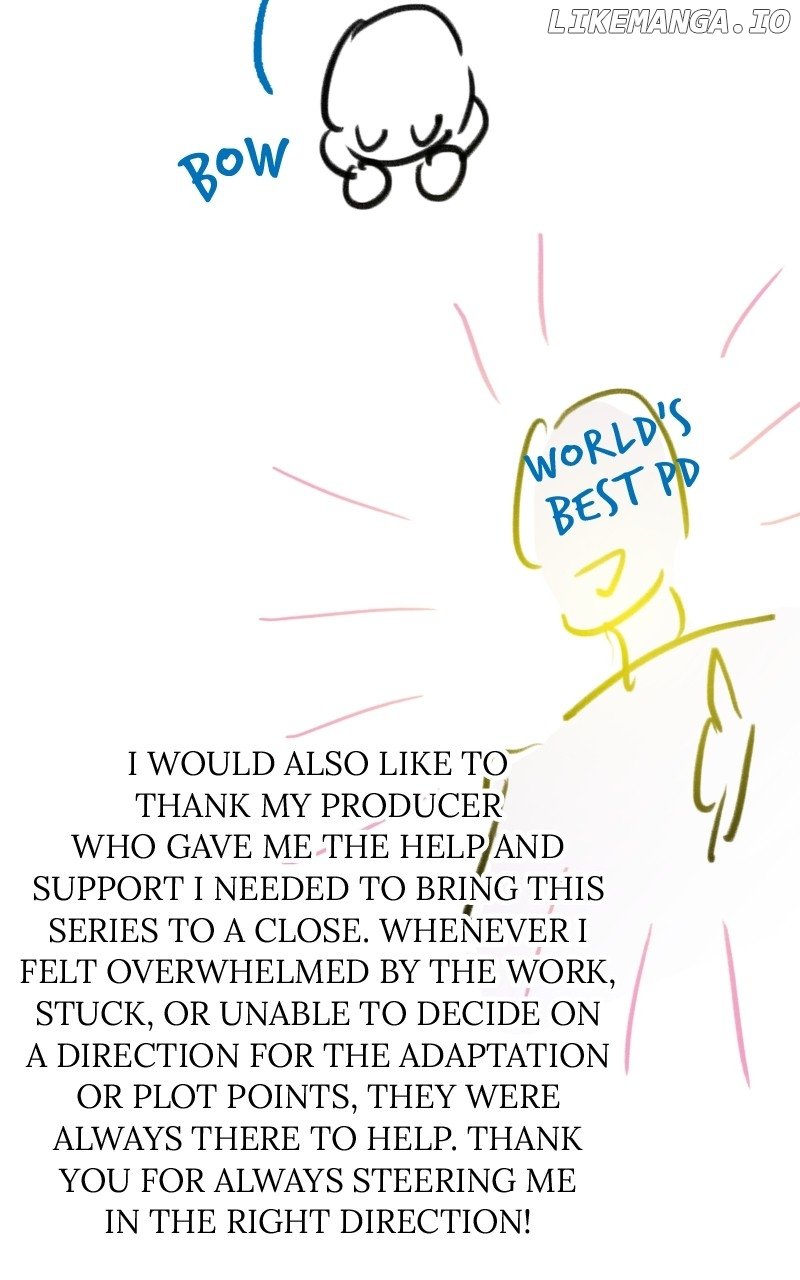 LIKEMANGA.IO
BOW
WORLD'S
BEST PD
I WOULD ALSO LIKE TO
THANK MY PRODUCER
WHO GAVE ME THE HELP AND
SUPPORT I NEEDED TO BRING THIS
SERIES TO A CLOSE. WHENEVER I
FELT OVERWHELMED BY THE WORK,
STUCK, OR UNABLE TO DECIDE ON
A DIRECTION FOR THE ADAPTATION
OR PLOT POINTS, THEY WERE
ALWAYS THERE TO HELP. THANK
YOU FOR ALWAYS STEERING ME
IN THE RIGHT DIRECTION!